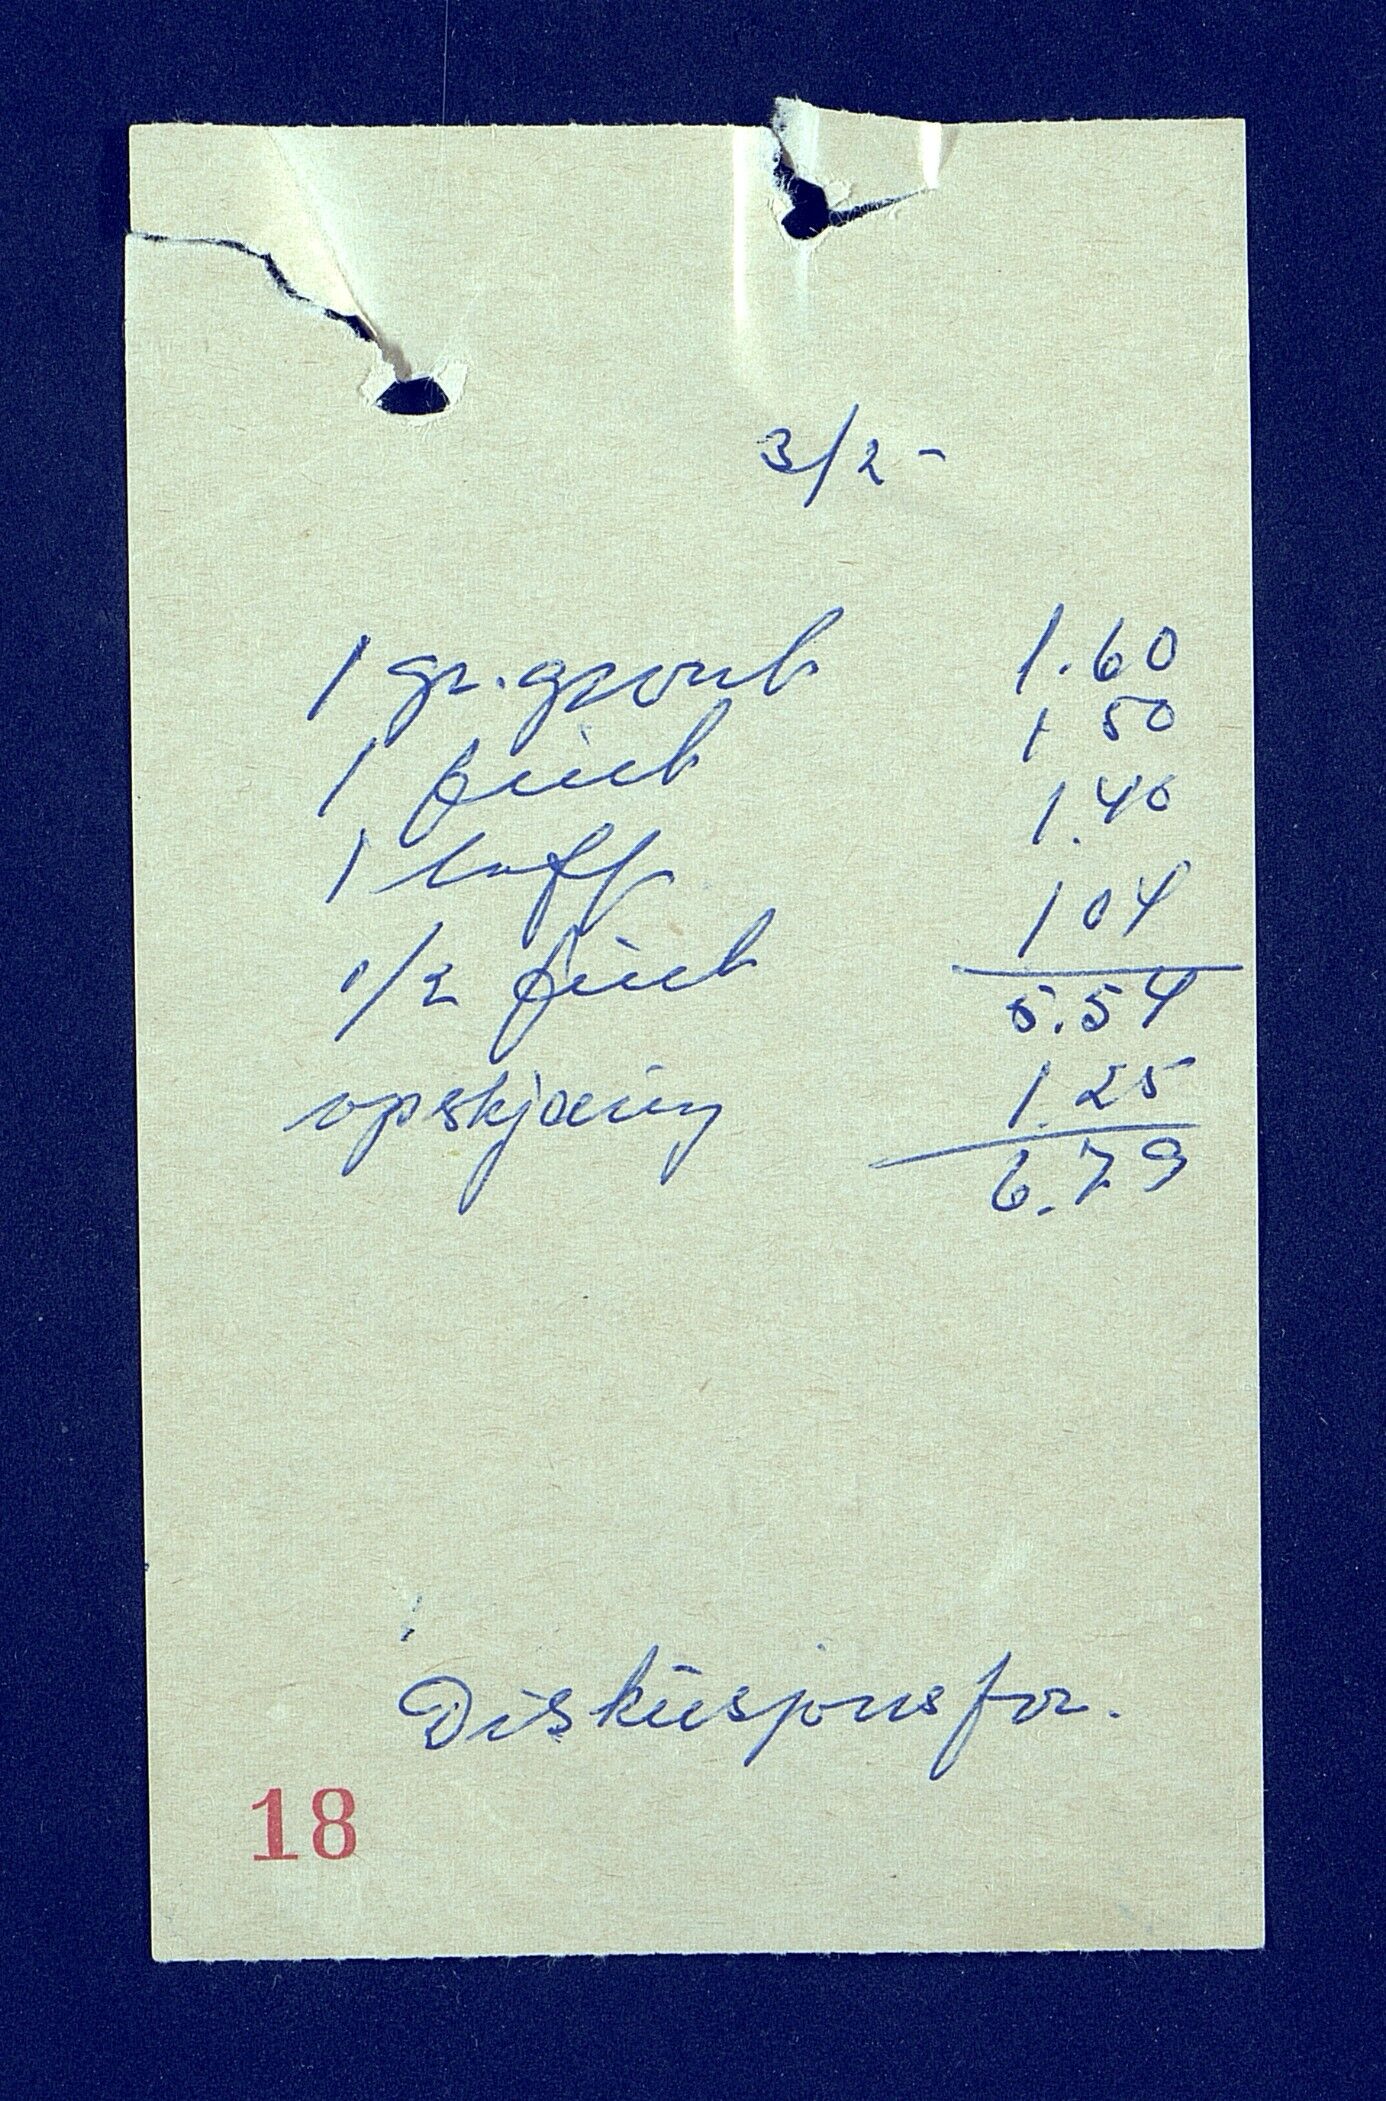 3/2 -
1 gr. groub 1.60
1 fieb 1 50
1 loff 1.40
1/2 fieb 1 04
5.54
opskjæring 1.25
6.79
Diskusjonsfor.
18